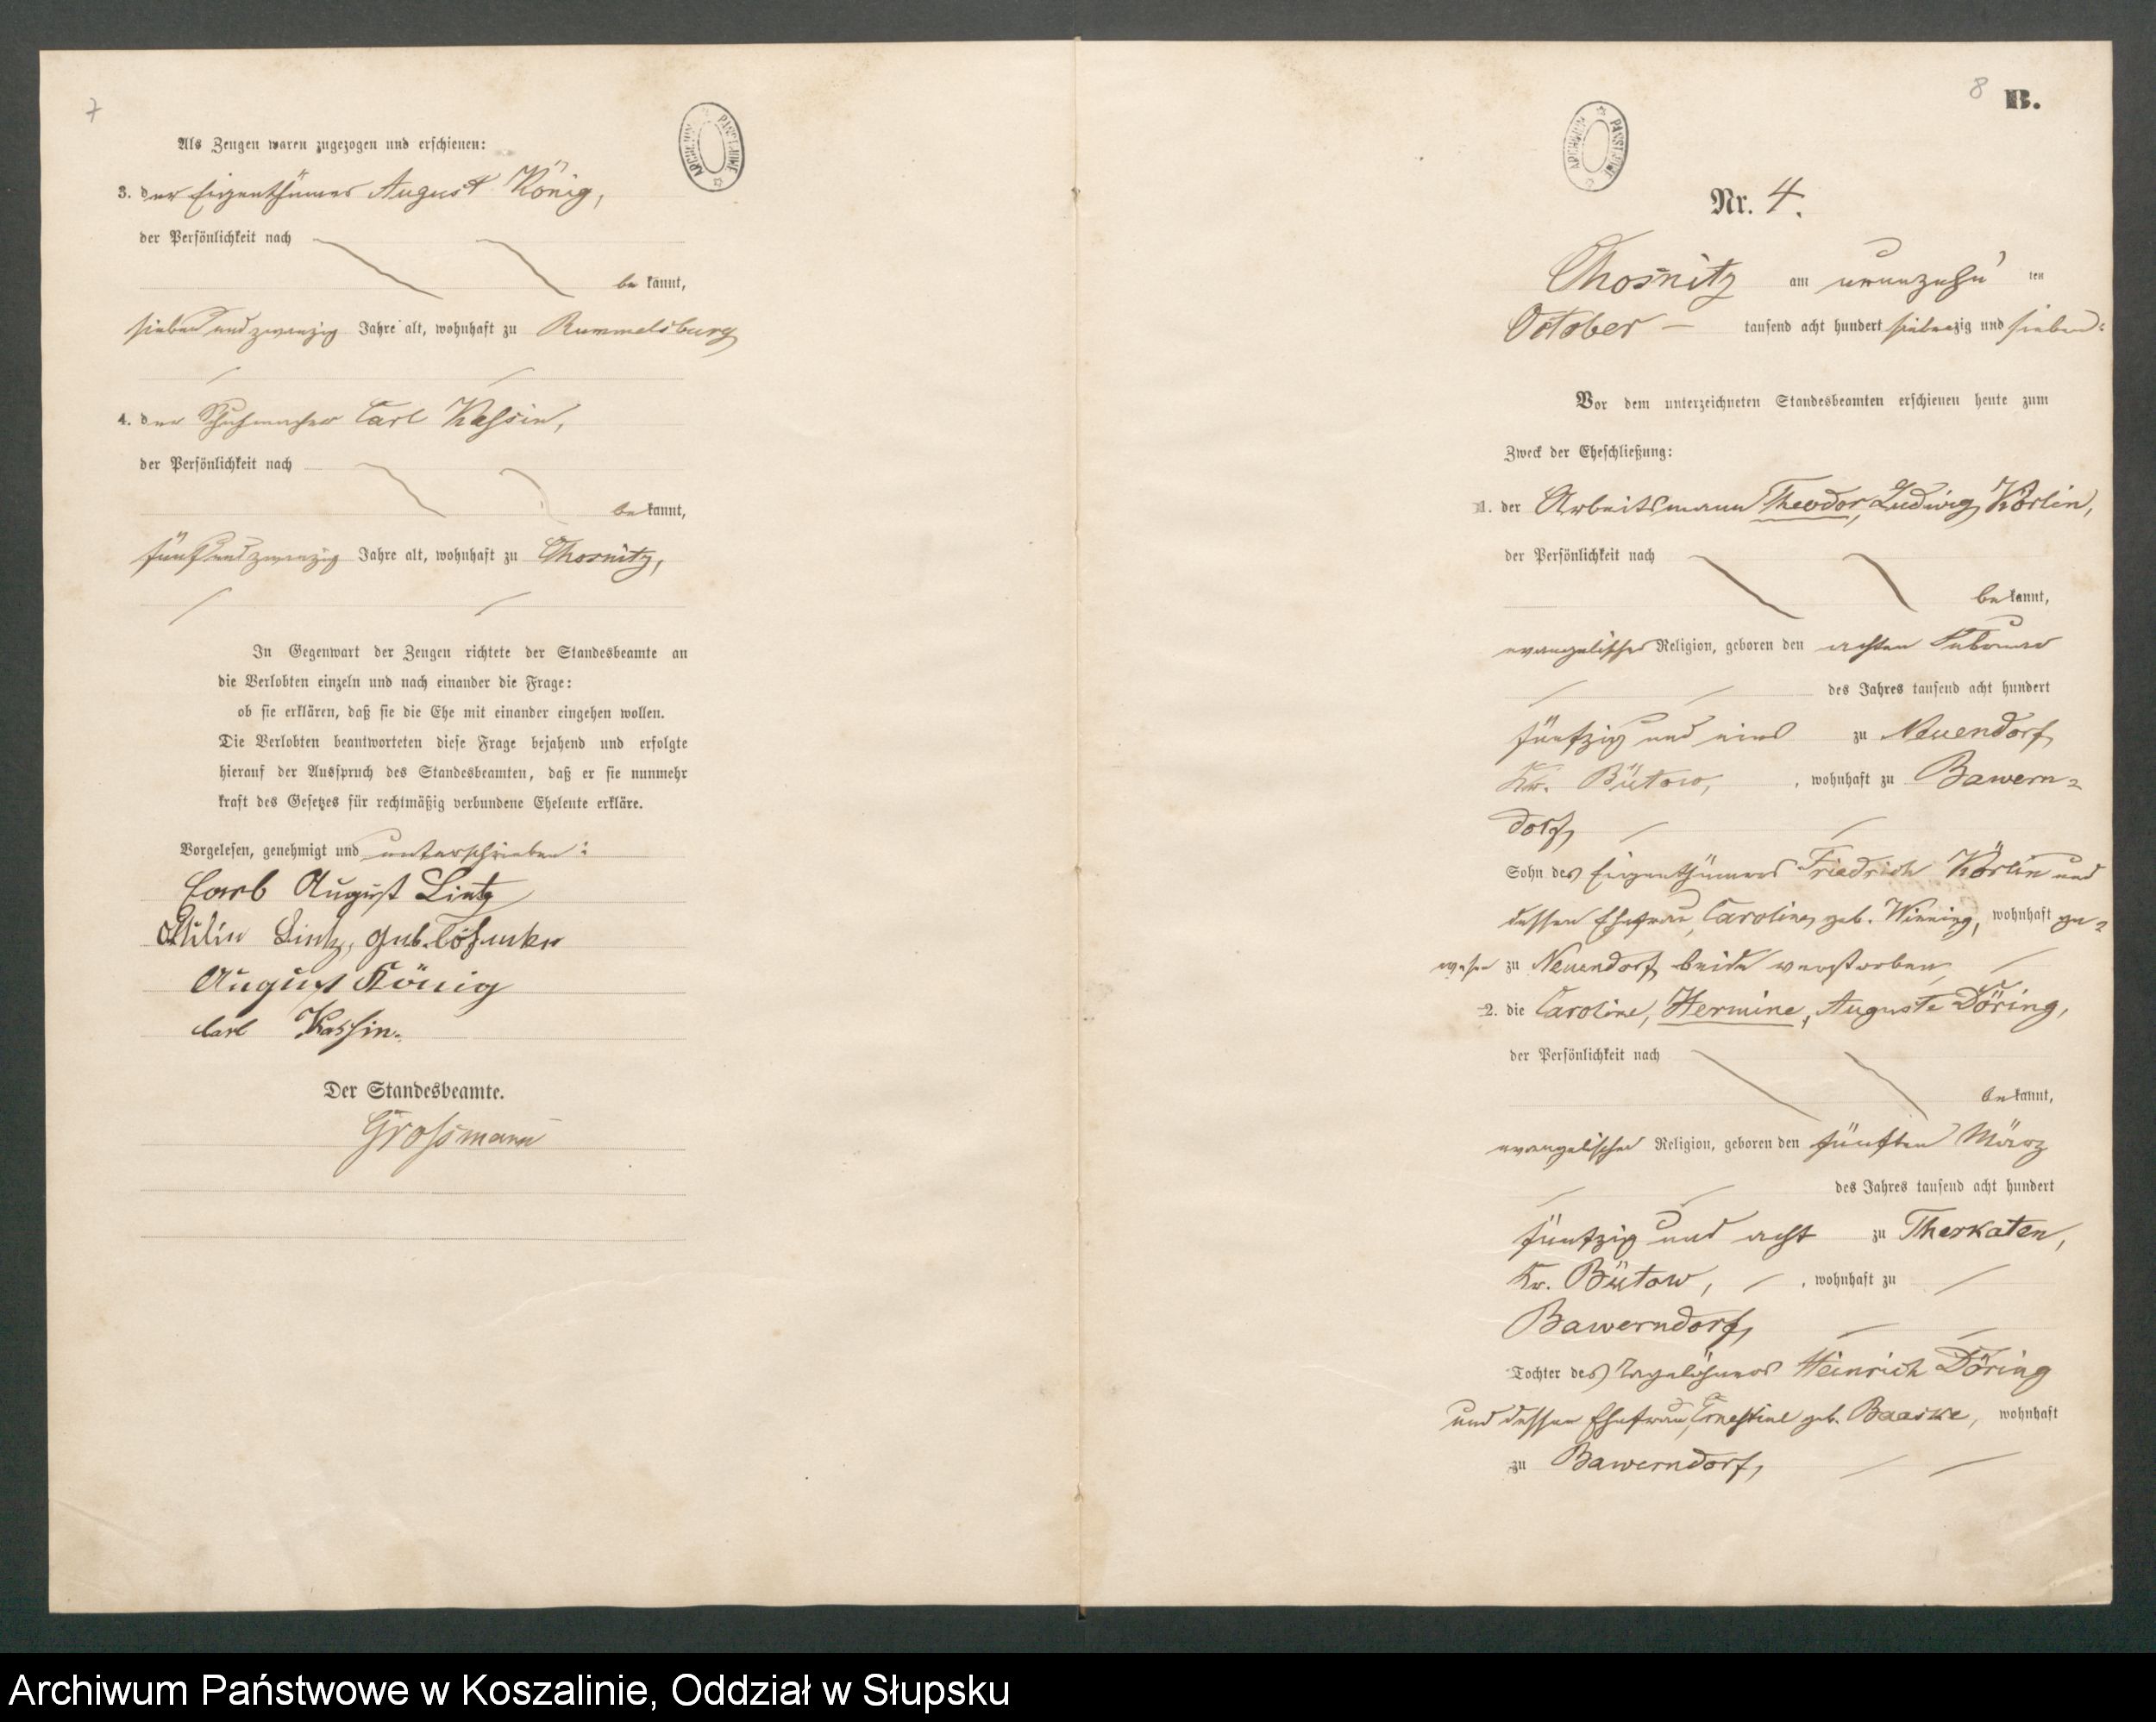 7
Als Zeugen waren zugezogen und erschienen:
3. der Eigenthümer August König,
der Persönlichkeit nach
be kannt,
sieben und zwanzig Jahre alt, wohnhaft zu Rummelsburg
4. der Schuhmacher Carl Kassin,
der Persönlichkeit nach
be kannt,
fünf und zwanzig Jahre alt, wohnhaft zu Chosnitz,
In Gegenwart der Zeugen richtete der Standesbeamte an
die Verlobten einzeln und nach einander die Frage:
ob sie erklären, daß sie die Ehe mit einander eingehen wollen.
Die Verlobten beantworteten diese Frage bejahend und erfolgte
hierauf der Ausspruch des Standesbeamten, daß er sie nunmehr
kraft des Gesetzes für rechtmäßig verbundene Eheleute erkläre.
Vorgelesen, genehmigt und unterschrieben:
August Lintz
Lintz, geb.
August König
Carl Kassin.
Der Standesbeamte.
Grossmann
ARCHIWUM PAŃSTWOWE
8 B.
ARCHIWUM PAŃSTWOWE
Nr. 4.
Chosnitz am neunzehn ten
October tausend acht hundert siebenzig und sieben.
Vor dem unterzeichneten Standesbeamten erschienen heute zum
Zweck der Eheschließung:
1. der Arbeitsmann Theodor, Ludwig Körlin,
der Persönlichkeit nach
be kannt,
evangelischer Religion, geboren den achten Februar
des Jahres tausend acht hundert
fünfzig und eins zu Neuendorf,
Kr. Bütow, , wohnhaft zu Bawern-
dorf,
Sohn des Eigenthümers Friedrich Körlin und
dessen Ehefrau, Caroline, geb. Winning, wohnhaft ge-
wesen zu Neuendorf, beide verstorben,
2. die Caroline, Hermine, Auguste Döring,
der Persönlichkeit nach
be kannt,
evangelischer Religion, geboren den fünften März
des Jahres tausend acht hundert
fünfzig und acht zu Therkaten,
Kr. Bütow, , wohnhaft zu
Bawerndorf,
Tochter des Tagelöhners Heinrich Döring
und dessen Ehefrau, Ernestine geb. Baaske, wohnhaft
zu Bawerndorf,
Archiwum Państwowe w Koszalinie, Oddział w Słupsku